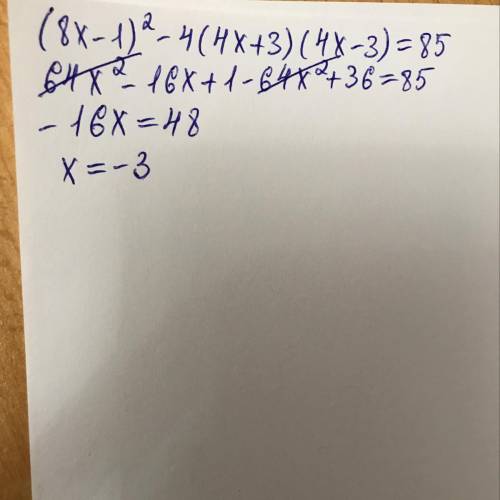 (8x-1)² - 4(4x+3)(4x-3)=85
64x² - 16x+1-64x²+36=85
- 16x=48
x=-3